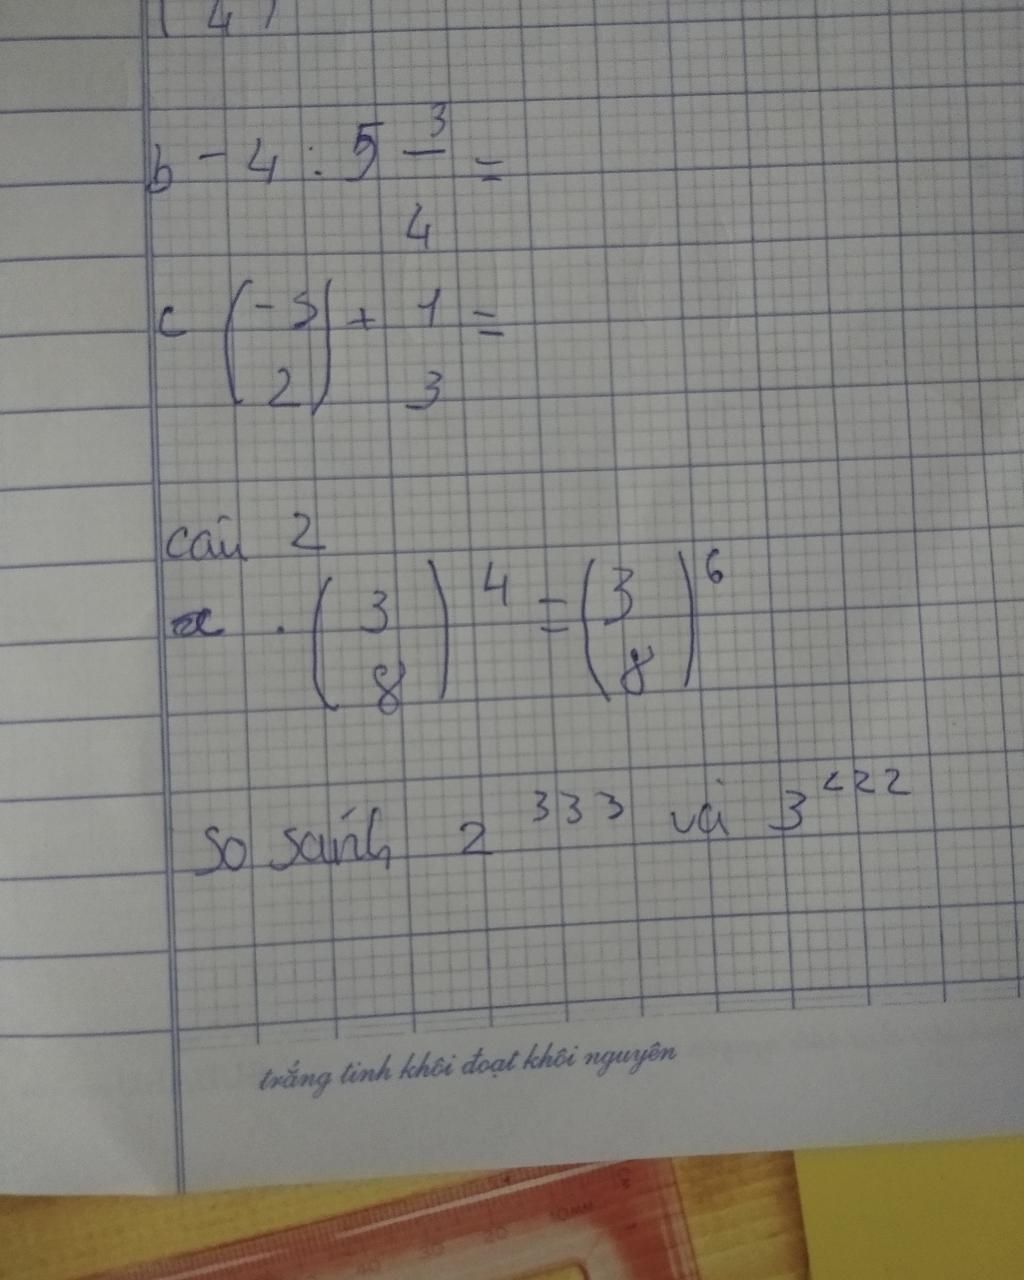 ( 4 )
b - 4 : 5 3/4 =
c (-5 2) + 1 3 =
câu 2
x . (3 8)^4 = (3 8)^6
so sánh 2^333 và 3^222
trắng tinh khôi đoạt khôi nguyên